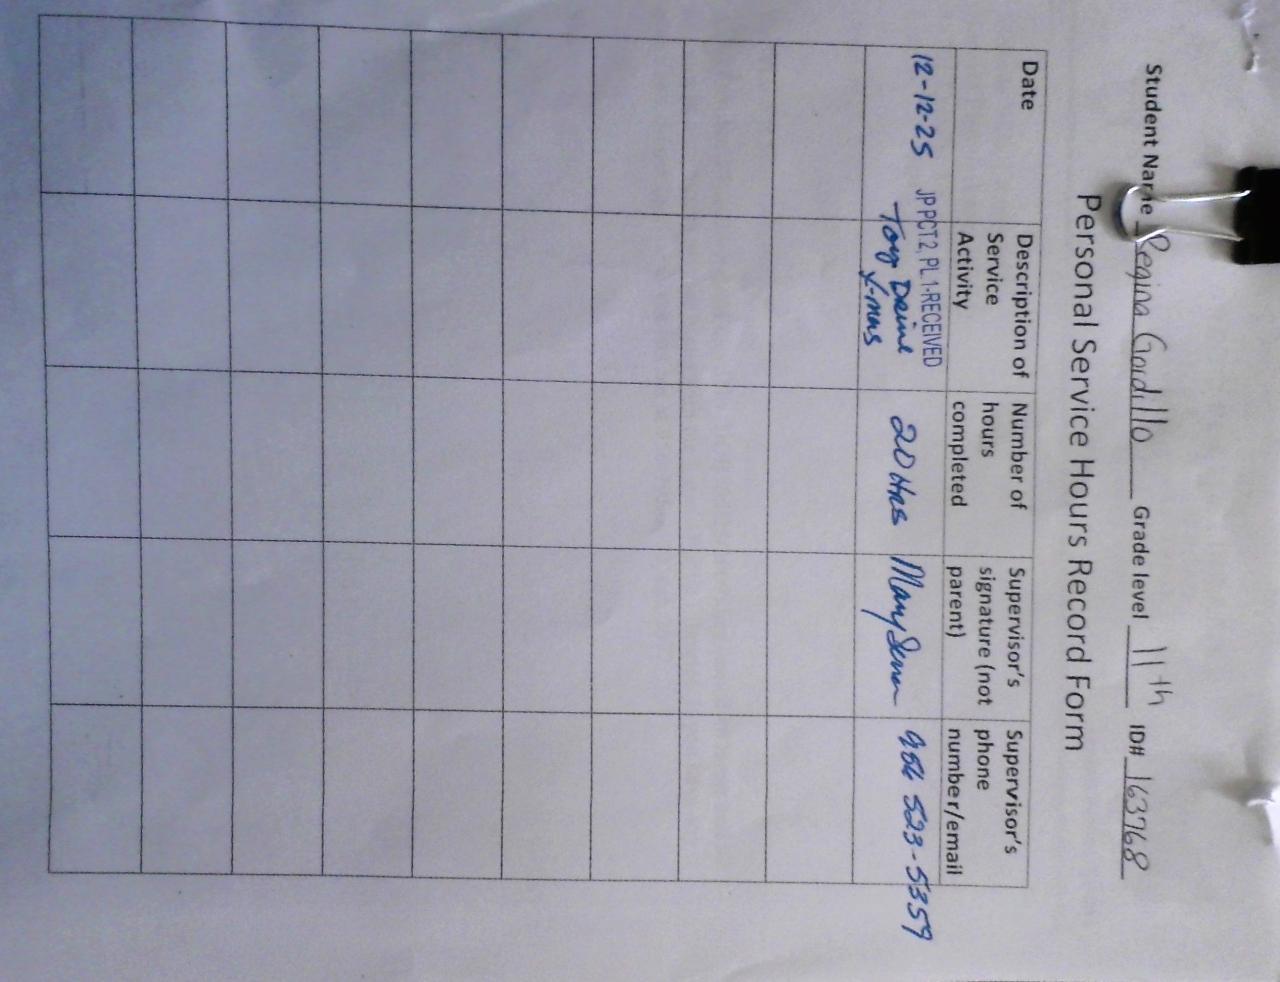 Student Name Regina Gordillo Grade level 11th ID# 163768
Personal Service Hours Record Form
Date
Description of
Service
Activity
Number of
hours
completed
Supervisor's
signature (not
parent)
Supervisor's
phone
number/email
12-12-25
JP PCT 2, PL 1-RECEIVED
Toy Drive
X-mas
20 Hrs
Mary
956 523-5359